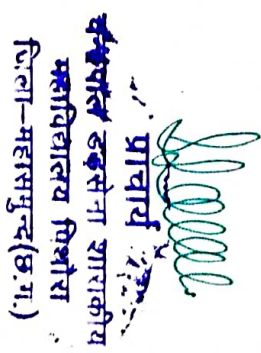 प्राचार्य
शासकीय
महाविद्यालय पिथौरा
जिला-महासमुन्द (छ.ग.)